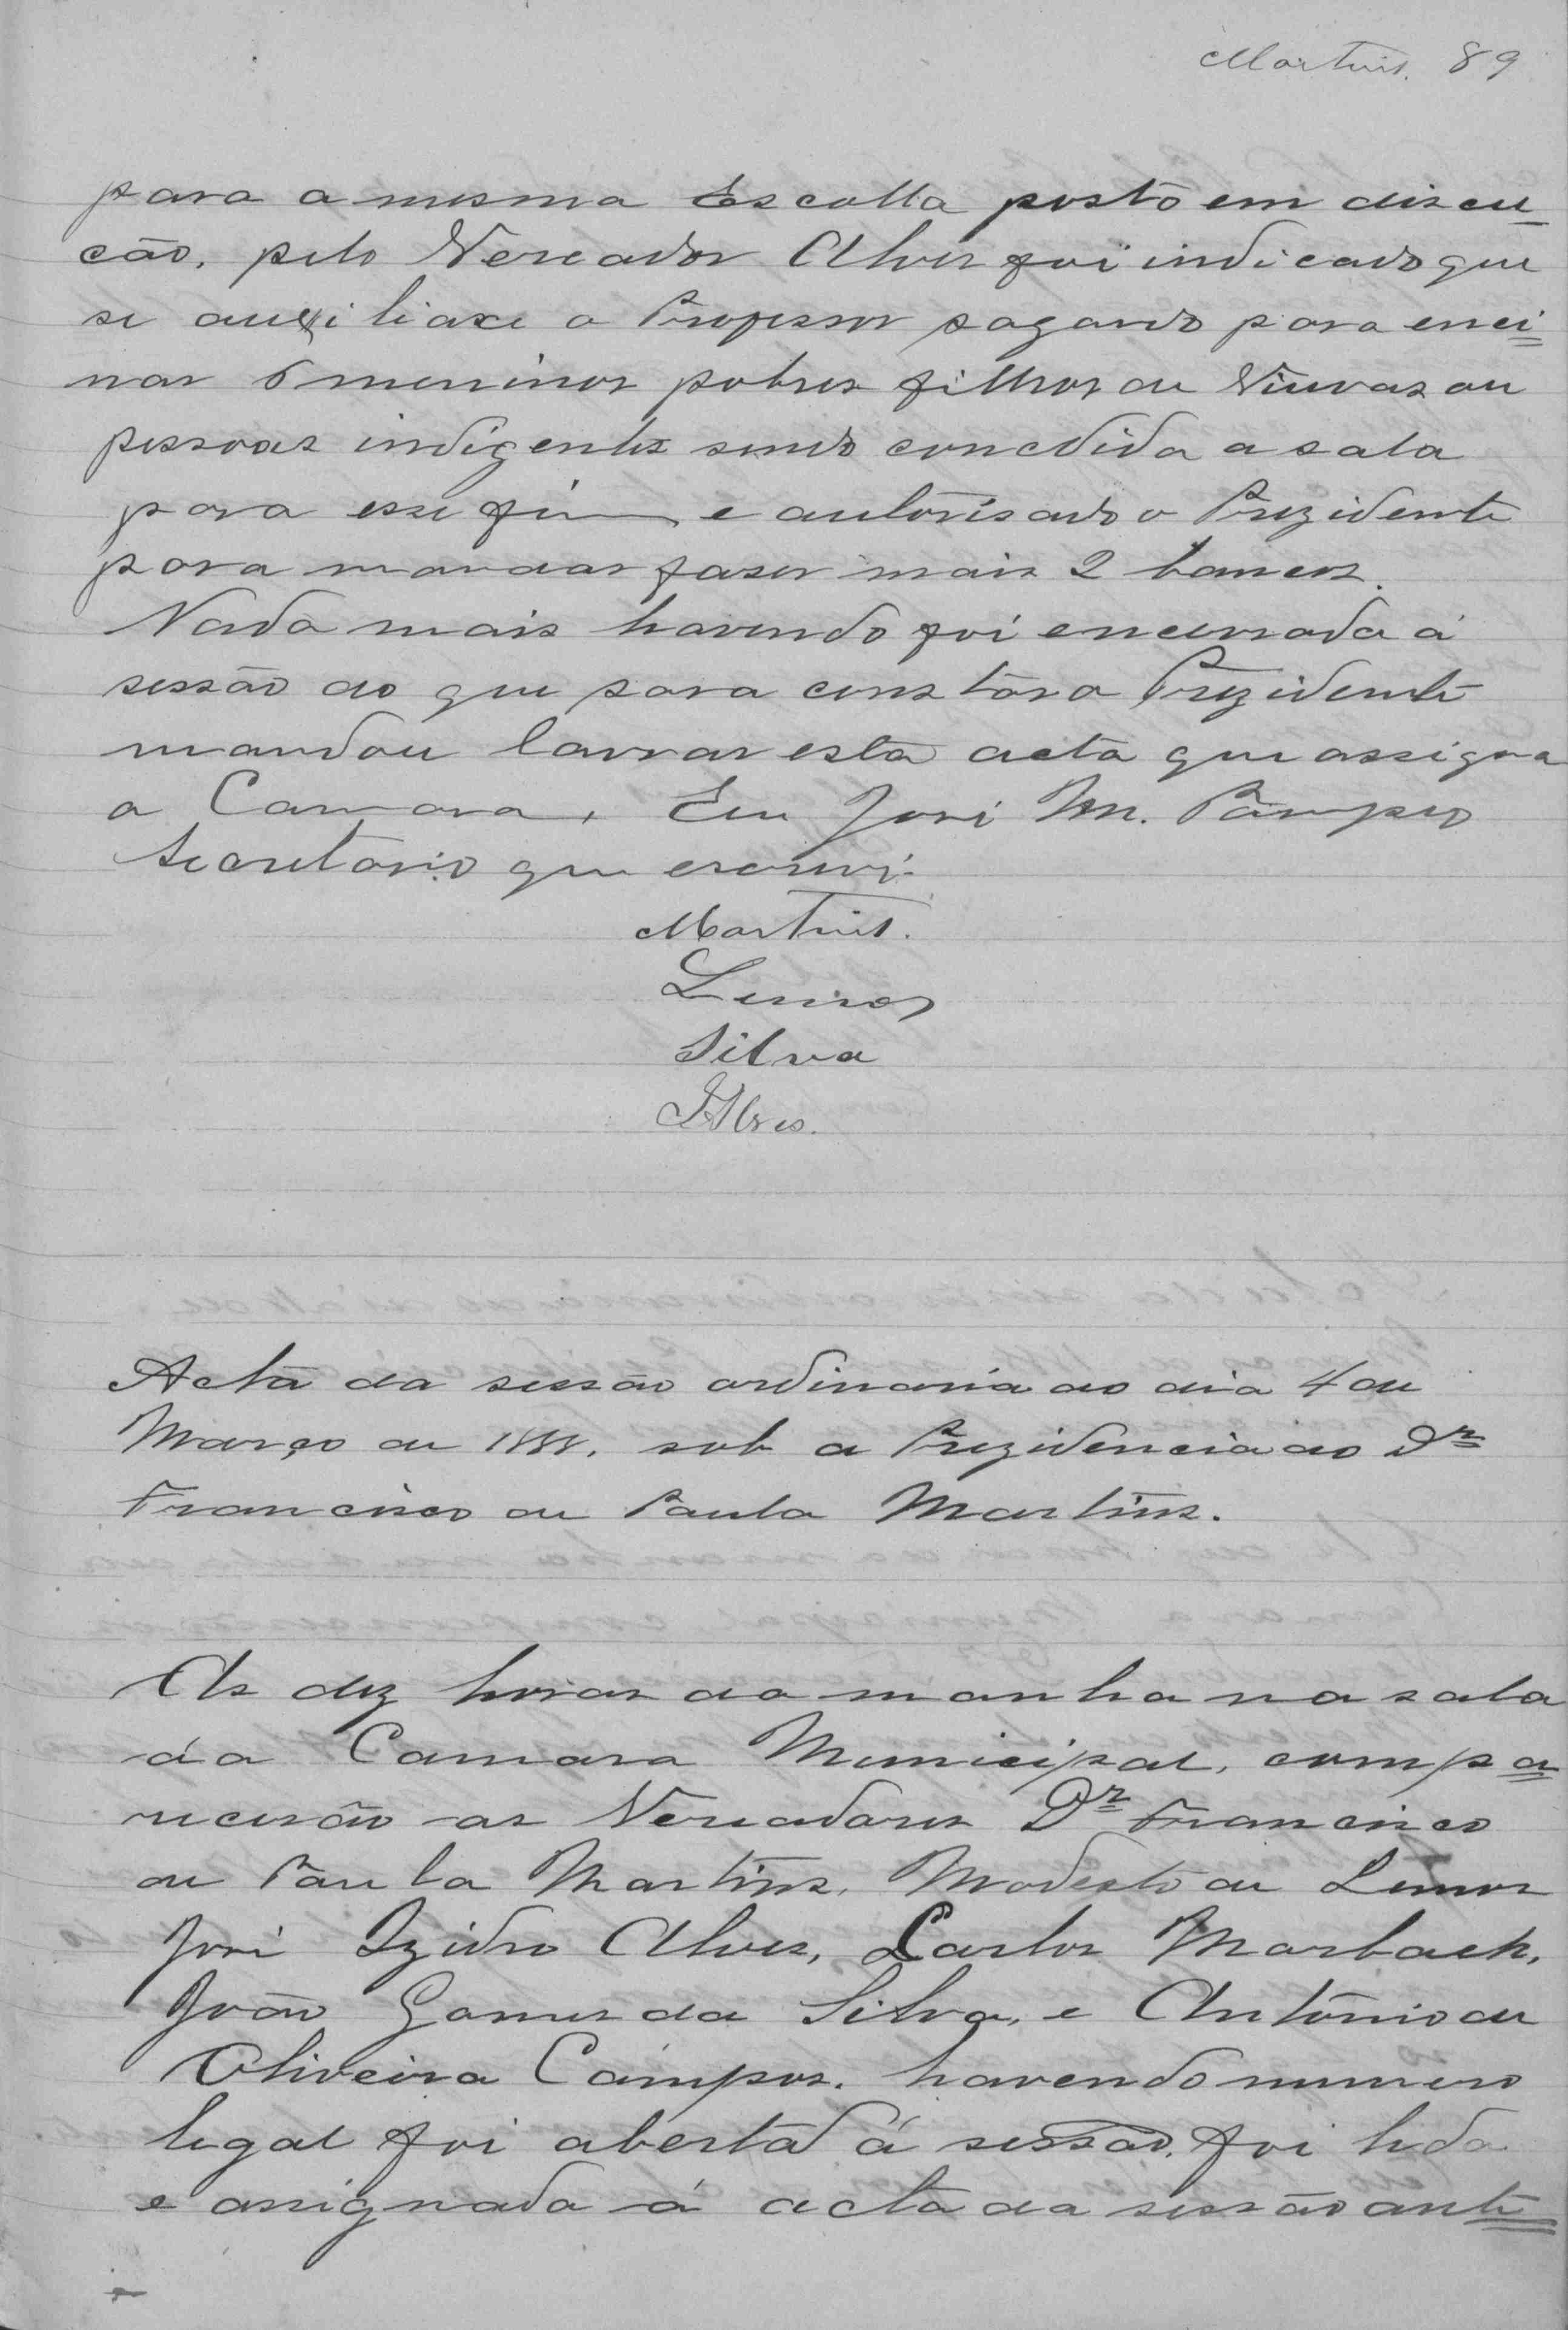 Martins. 89
para a mesma Escolla posto em discu
cão, pelo Vereador Alves foi indicado que
se auxiliace o Professor pagando para enci
nar 6 meninos pobres filhos de Viuvas ou
pessoas indigentes sendo concedida a sala
para esse fim e autorisado o Prezidente
para mandar faser mais 2 bancos.
Nada mais havendo foi encerrada á
sessão do que para constar o Prezidente
mandou lavrar esta acta que assigna
a Camara, Eu José M. Pompeo
Secretario que escrevi.
Martins.
Lemos
Silva
IAlves.
Acta da sessão ordinaria do dia 4 de
Março de 1888, sob a Prezidencia do Dr
Francisco de Paula Martins.
As dez horas da manha na sala
da Camara Municipal, compa
recerão os Vereadores Dr Francisco
de Paula Martins, Modesto de Lemos
José Izidro Alves, Carlos Marbach,
João Gomes da Silva, e Antonio de
Oliveira Campos. havendo numero
legal foi aberta á sessão, foi lida
e assignada á acta da sessão ante